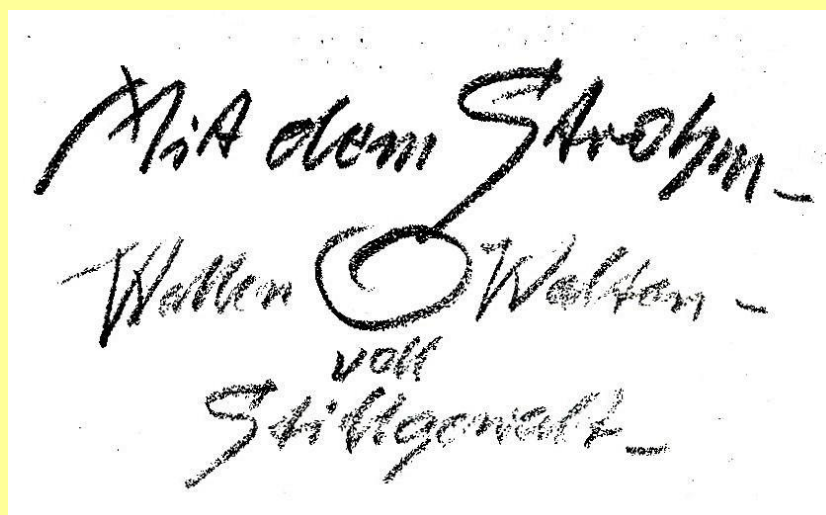 Mit dem Strohm-
Wallen Walten-
voll
Stillgewalt-